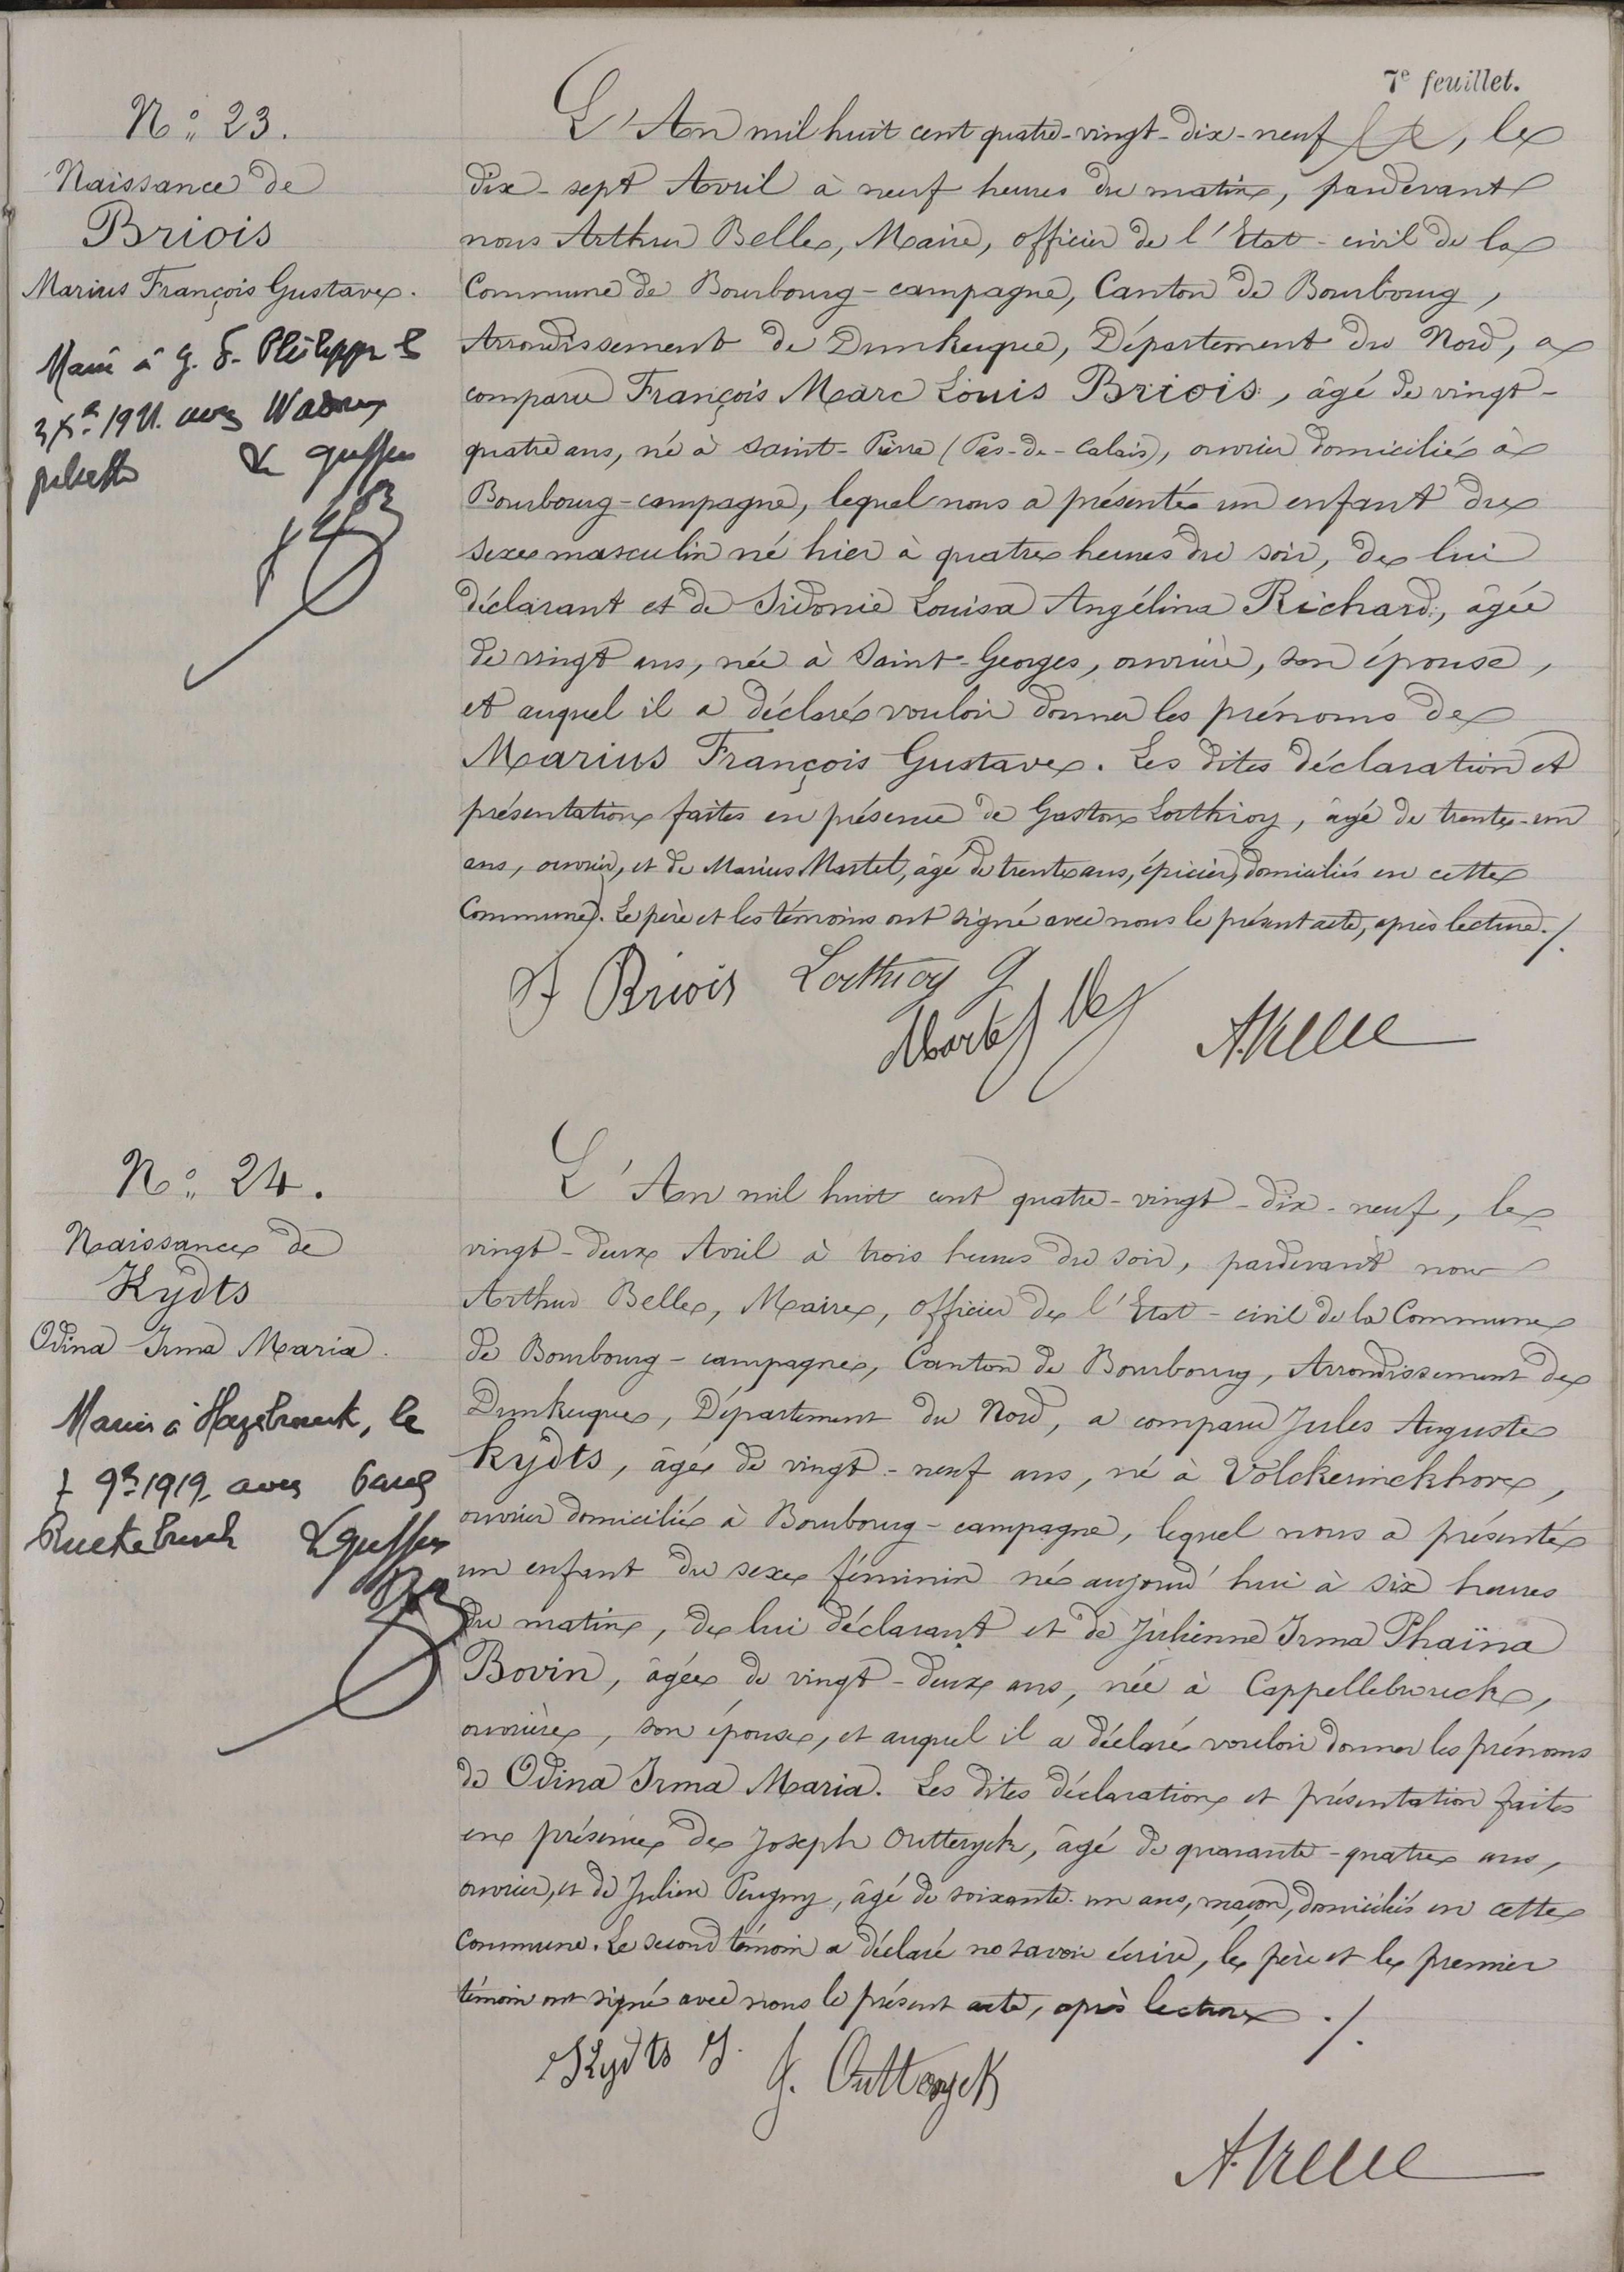 7e feuillet.
N° 23.
Naissance de
Briois
Marius François Gustave.
Marié à G. F. Philippe le
3 Xbre 1921. avec
Le greffier
L'An mil huit cent quatre-vingt-dix-neuf, le
dix-sept Avril à neuf heures du matin, pardevant
nous Arthur Belle, Maire, officier de l'Etat-civil de la
Commune de Bourbourg-campagne, Canton de Bourbourg,
Arrondissement de Dunkerque, Département du Nord, a
comparu François Marc Louis Briois, âgé de vingt-
quatre ans, né à Saint-Pierre (Pas-de-Calais), ouvrier domicilié à
Bourbourg-campagne, lequel nous a présenté un enfant du
sexe masculin né hier à quatre heures du soir, de lui
déclarant et de Sidonie Louisa Angélina Richard, âgée
de vingt ans, née à Saint-Georges, ouvrière, son épouse,
et auquel il a déclaré vouloir donner les prénoms de
Marius François Gustave. Les dites déclaration et
présentation faites en présence de Gaston Lorthioy, âgé de trente-un
ans, ouvrier, et de Marius Martel, âgé de trente ans, épicier, domiciliés en cette
Commune. Le père et les témoins ont signé avec nous le présent acte, après lecture./.
f Briois Lorthioy G
Martel M
A. Belle
N° 24.
Naissance de
Kydts
Odina Irma Maria.
Mariée à Hazebrouck, le
7 9bre 1919. avec
Ruckebusch Le greffier
L'An mil huit cent quatre-vingt-dix-neuf, le
vingt-deux Avril à trois heures du soir, pardevant nous
Arthur Belle, Maire, officier de l'Etat-civil de la Commune
de Bourbourg-campagne, Canton de Bourbourg, Arrondissement de
Dunkerque, Département du Nord, a comparu Jules Auguste
Kydts, âgé de vingt-neuf ans, né à Volckerinckhove,
ouvrier domicilié à Bourbourg-campagne, lequel nous a présenté
un enfant du sexe féminin né aujourd'hui à six heures
du matin, de lui déclarant et de Julienne Irma Phaïna
Bovin, âgée de vingt-deux ans, née à Cappellebrouck,
ouvrière, son épouse, et auquel il a déclaré vouloir donner les prénoms
de Odina Irma Maria. Les dites déclaration et présentation faites
en présence de Joseph Outteryck, âgé de quarante-quatre ans,
ouvrier, et de Julien Peugny, âgé de soixante-un ans, maçon, domiciliés en cette
Commune. Le second témoin a déclaré ne savoir écrire, le père et le premier
témoin ont signé avec nous le présent acte, après lecture ./.
Kydts J. J. Outteryck
A. Belle